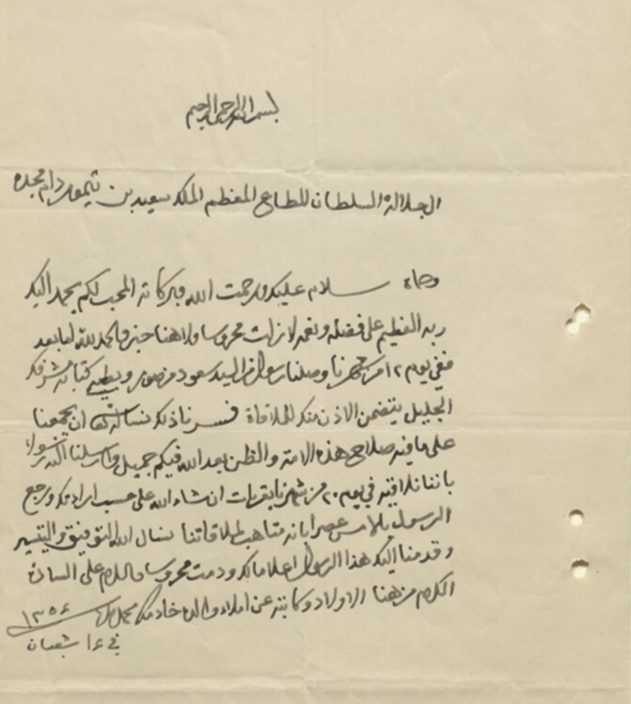 بسم الله الرحمن الرحيم
الجلالة السلطان المطاع المعظم الملك سعيد بن تيمور دام مجده
وحماه سلام عليك ورحمت الله وبركاته المحب لكم بحمد اليك
ربه العظيم على فضله ونعمه لا زلت محروسا ولا هنا خبر والحمد لله اما بعد
ففي يوم ١٢ من شهرنا وصلنا رسولنا السيد سعود وبطيه كتابه مشرفكم
الجليل يتضمن الاذن منك للملاقاة فسرنا ذلك نسال الله ان يجمعنا
على ما فيه صلاح هذه الامة والظن بعد الله فيكم جميل وارسلنا اليه رسولا
باننا نلاقيه في يوم ٢٠ من شهرنا بقريات ان شاء الله على حسب ارادتكم ورجع
الرسول بالامس عصرا بانه متاهب لملاقاتنا نسال الله التوفيق والتيسير
وقدمنا اليك هذا الرسول اعلاما لك ودمت محروسا والسلام على السادة
الكرام من هنا الاولاد وكاتبه عن املاء والده خادمكم
في ١٤ شعبان ١٣٥٦